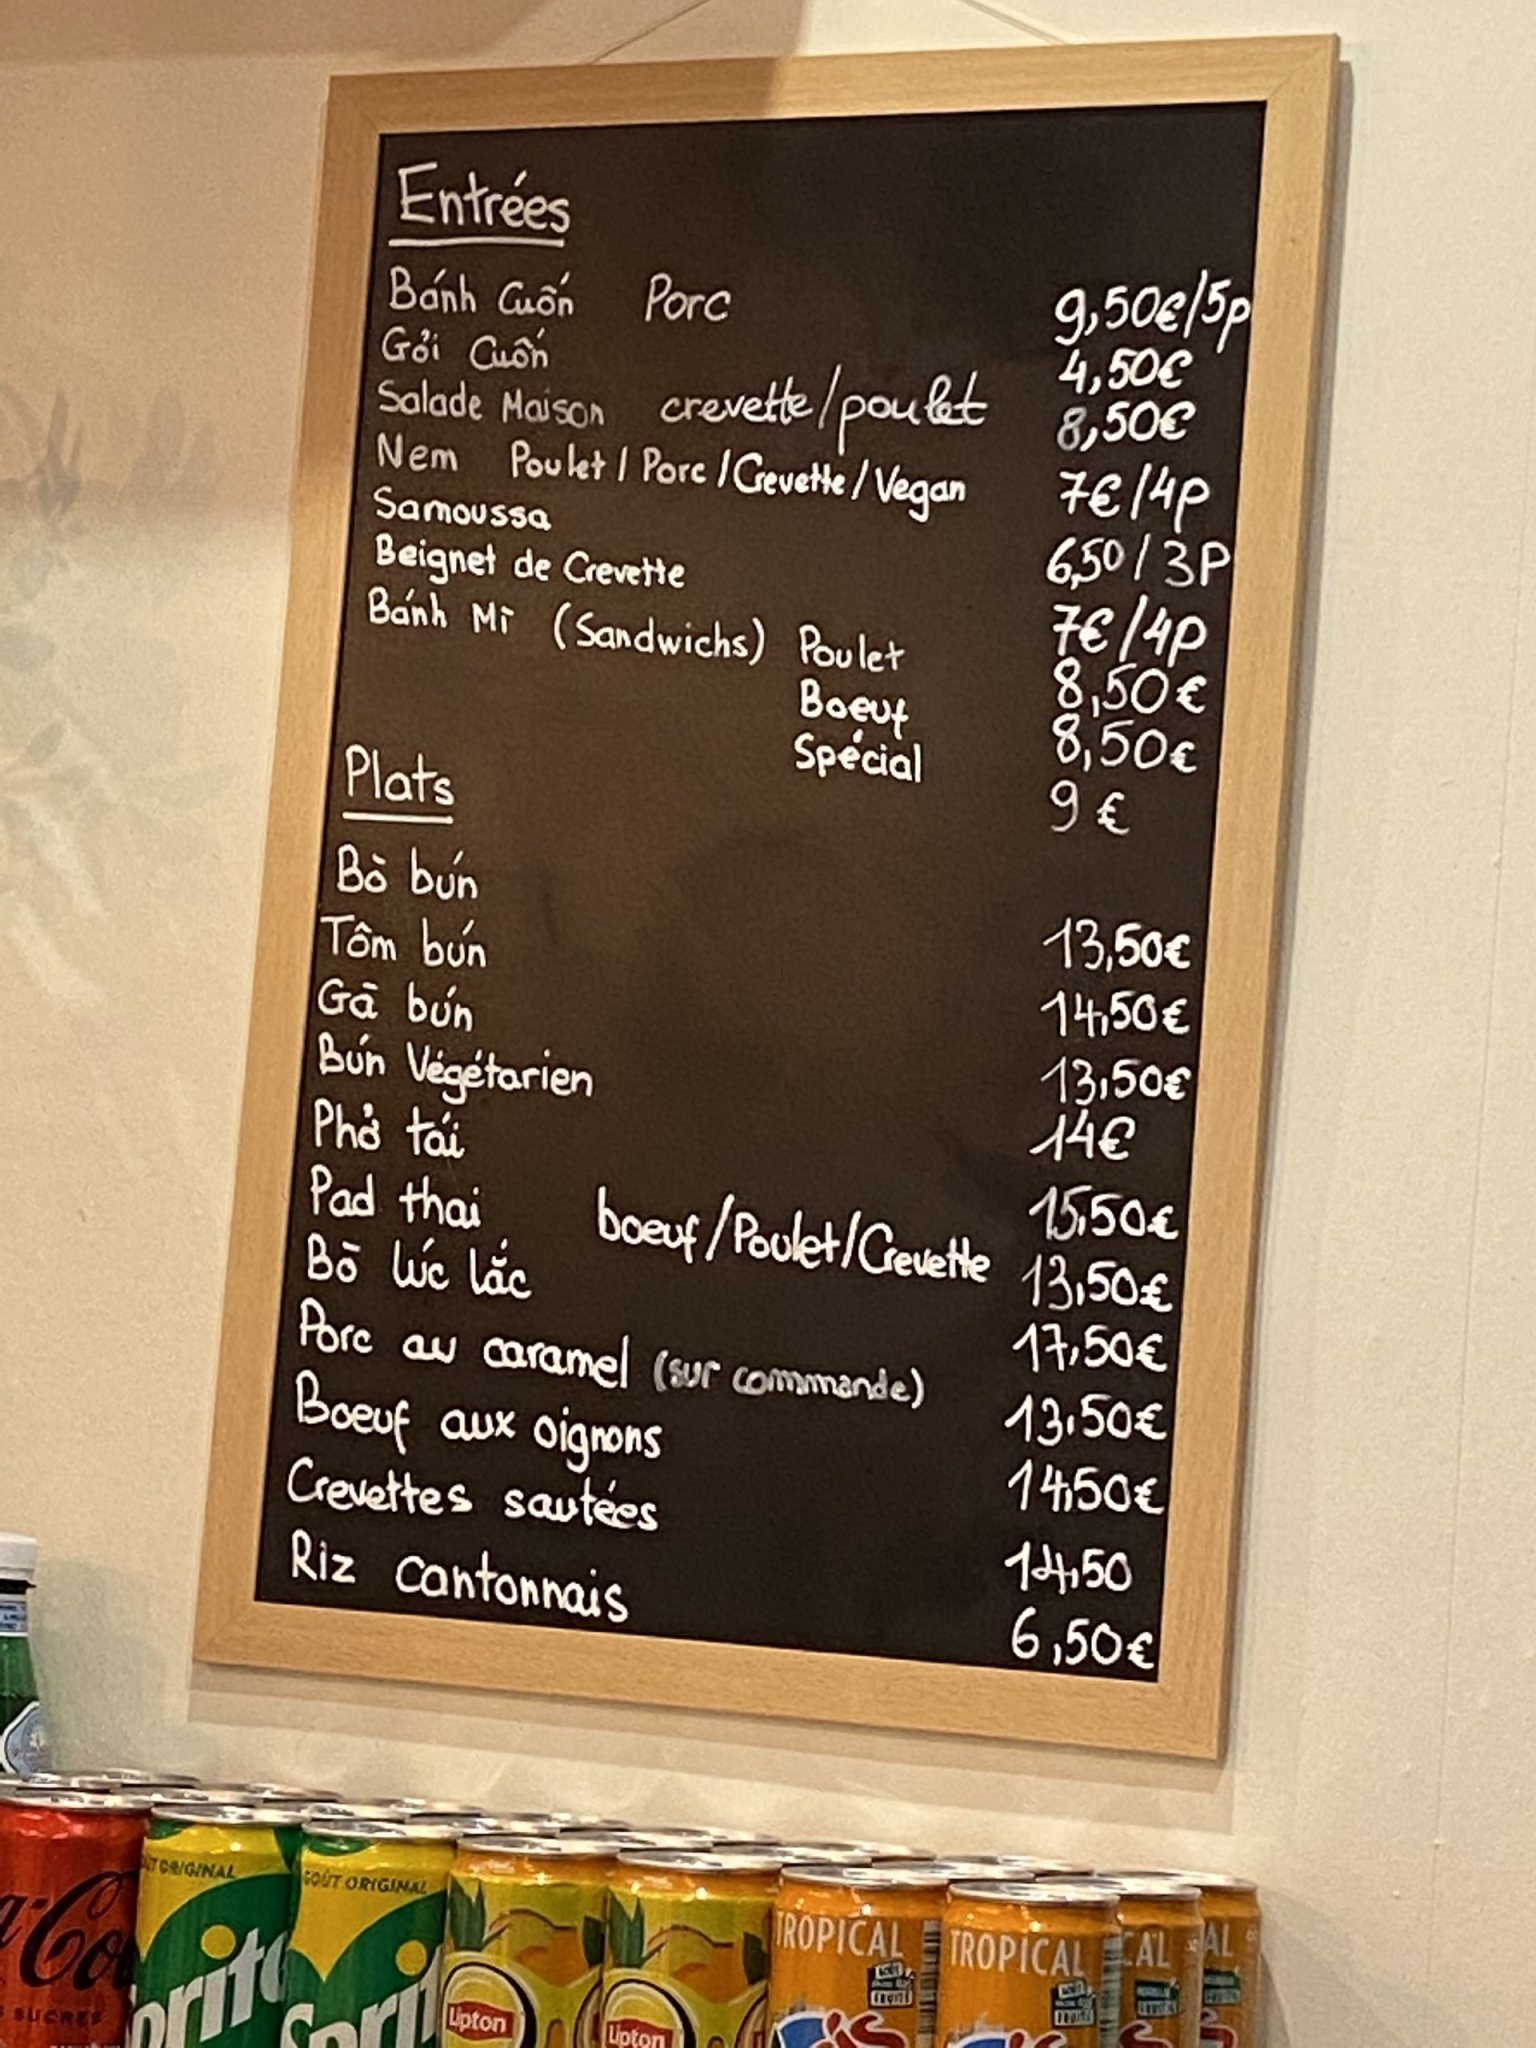 Entrées
Bánh Cuốn Porc 9,50€/5p
Gỏi Cuốn 4,50€
Salade Maison crevette/poulet 8,50€
Nem Poulet/Porc/Crevette/Vegan 7€/4p
Samoussa 6,50/3P
Beignet de Crevette 7€/4p
Bánh Mĩ (Sandwichs) Poulet 8,50€
Boeuf 8,50€
Spécial 9€
Plats
Bò bún 13,50€
Tôm bún 14,50€
Gà bún 13,50€
Bún Végétarien 14€
Phở tái 15,50€
Pad thai boeuf/Poulet/Crevette 13,50€
Bò lúc lắc 17,50€
Porc au caramel (sur commande) 13,50€
Boeuf aux oignons 14,50€
Crevettes sautées 14,50
Riz cantonnais 6,50€
SUCRES
GOÛT ORIGINAL
Sprite
Lipton
Lipton
TROPICAL
TROPICAL